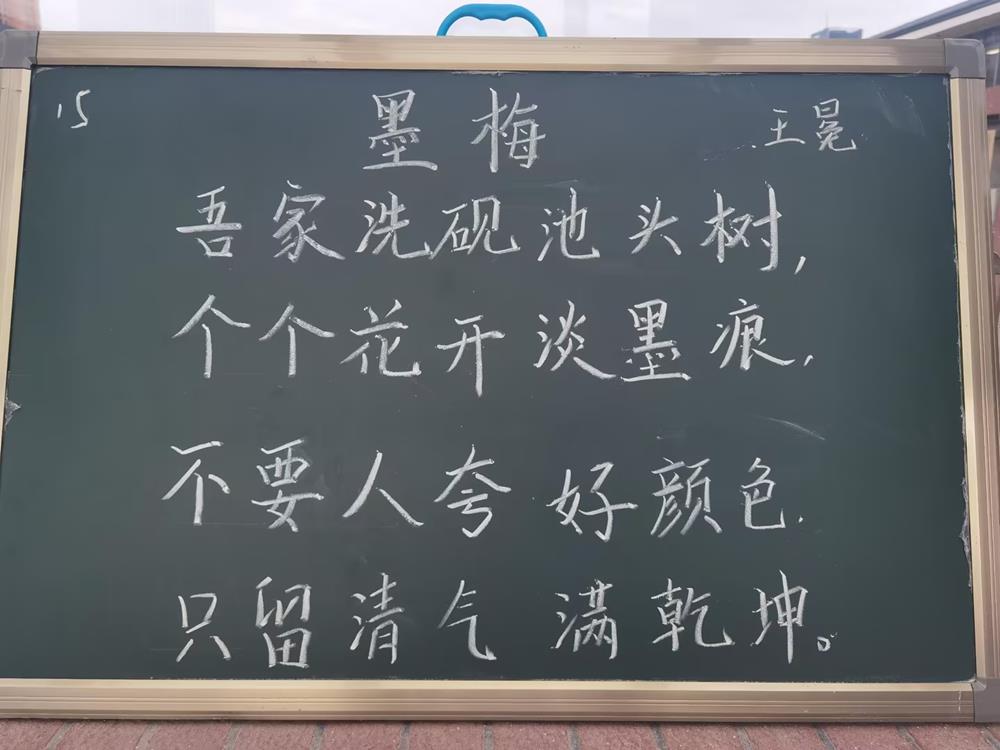 15
墨梅
王冕
吾家洗砚池头树,
个个花开淡墨痕,
不要人夸好颜色.
只留清气满乾坤。